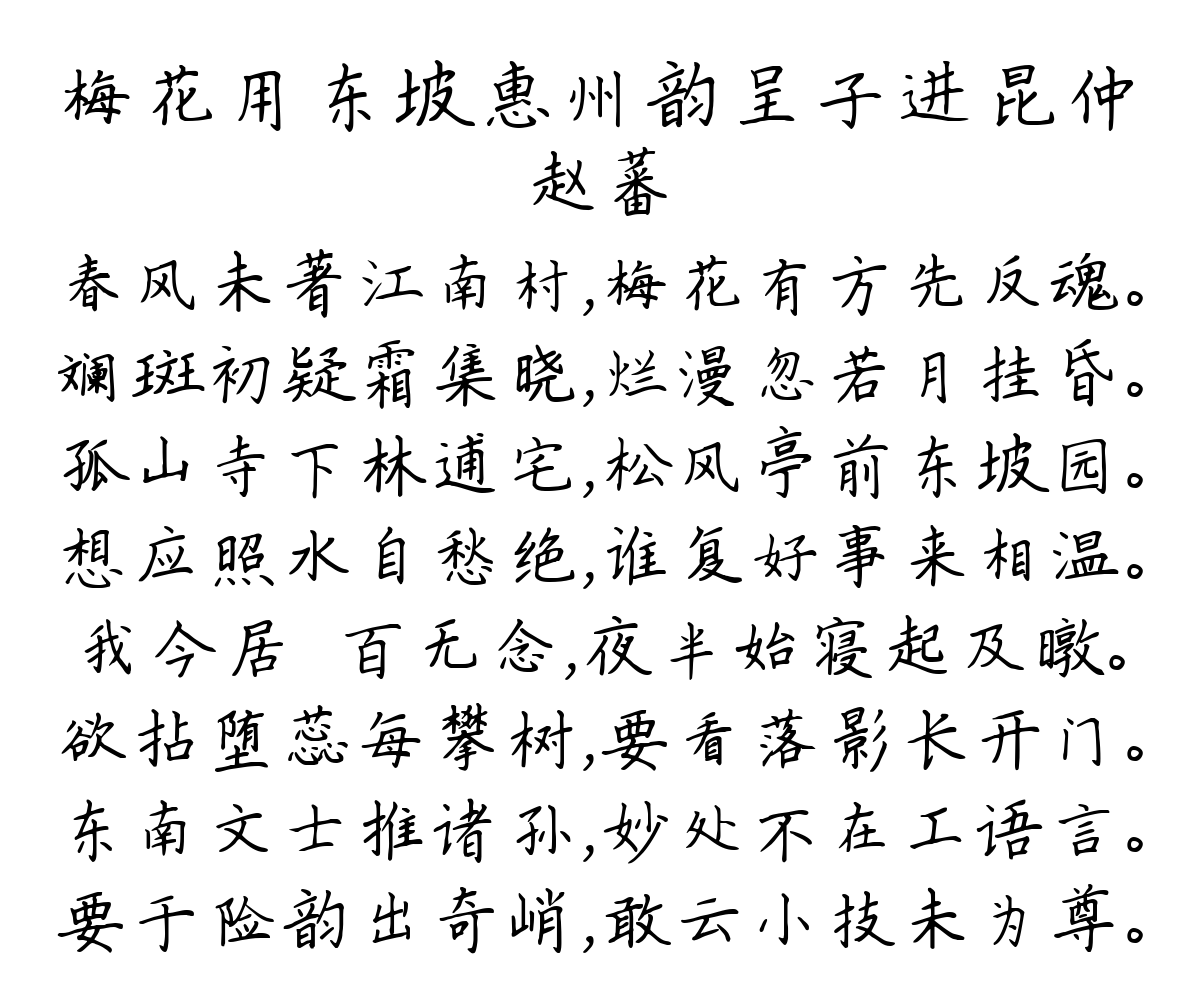 梅花用东坡惠州韵呈子进昆仲
赵蕃
春风未著江南村,梅花有方先反魂。
斓斑初疑霜集晓,烂漫忽若月挂昏。
孤山寺下林逋宅,松风亭前东坡园。
想应照水自愁绝,谁复好事来相温。
我今居 百无念,夜半始寝起及暾。
欲拈堕蕊每攀树,要看落影长开门。
东南文士推诸孙,妙处不在工语言。
要于险韵出奇峭,敢云小技未为尊。